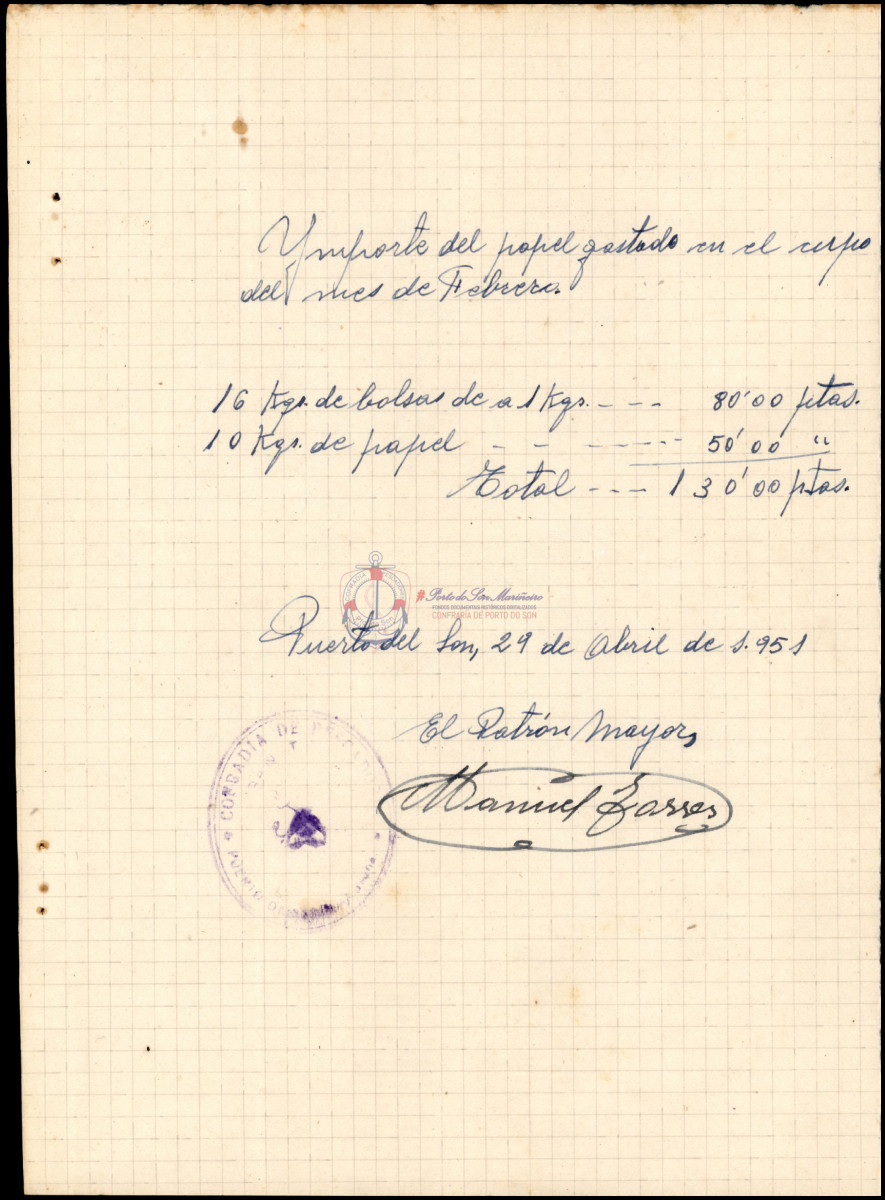 Ymporte del papel gastado en el cupo
del mes de Febrero.
16 Kgs. de bolsas de a 1 Kgs. - - - 80'00 ptas.
10 Kgs. de papel - - - - - - - 50'00 "
Total - - - 130'00 ptas.
#Porto do Son Mariñeiro
FONDOS DOCUMENTAIS HISTÓRICOS DIXITALIZADOS
CONFRARÍA DE PORTO DO SON
Puerto del Son, 29 de Abril de 1.951
El Patrón Mayor,
COMBADIA DE
PUERTO
Manuel